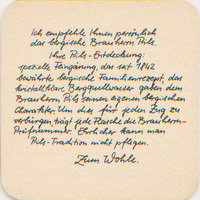 Ich empfehle Ihnen persönlich
das bergische Brauherrn Pils.
Ihre Pils-Entdeckung:
spezielle Feingärung, das seit 1842
bewährte bergische Familienrezept, das
kristallklare Bergquellwasser gaben dem
Brauherrn Pils seinen eigenen bergischen
Charakter. Um dies für jeden Zug zu
verbürgen, trägt jede Flasche die Brauherrn-
Prüfnummer. Ehrlicher kann man
Pils-Tradition nicht pflegen.
Zum Wohle.